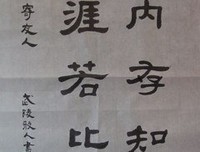 内存知
涯若比
寄友人
武陵散人書